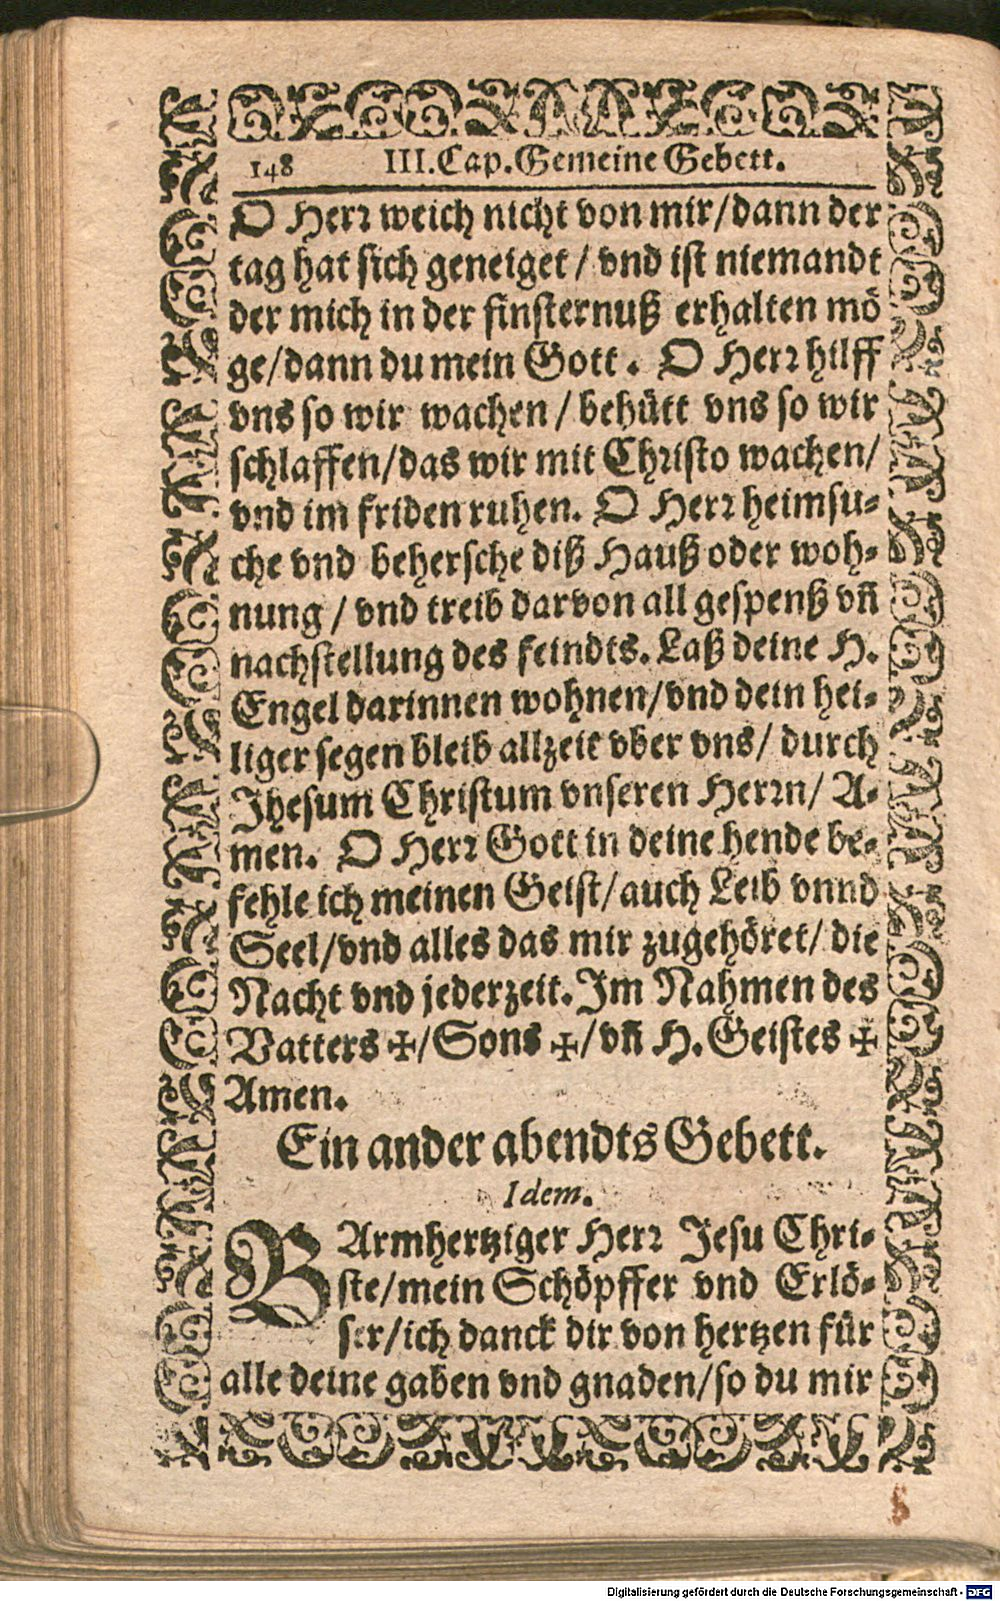 148 III. Cap. Gemeine Gebett.
O Herr weich nicht von mir/dann der
tag hat sich geneiget / vnd ist niemandt
der mich in der finsternuß erhalten mö
ge/dann du mein Gott. O Herr hilff
vns so wir wachen / behütt vns so wir
schlaffen/das wir mit Christo wachen/
vnd im friden ruhen. O Herr heimsu-
che vnd behersche diß Hauß oder woh-
nung / vnd treib darvon all gespenß vñ
nachstellung des feindts. Laß deine H.
Engel darinnen wohnen/vnd dein hei-
liger segen bleib allzeit vber vns/ durch
Jhesum Christum vnseren Herrn/ A-
men. O Herr Gott in deine hende be-
fehle ich meinen Geist/auch Leib vnnd
Seel/vnd alles das mir zugehöret/ die
Nacht vnd jederzeit. Im Nahmen des
Vatters ✠/Sons ✠/vñ H. Geistes ✠
Amen.
Ein ander abendts Gebett.
Idem.
BArmhertziger Herr Jesu Chri-
ste/mein Schöpffer vnd Erlö-
ser/ich danck dir von hertzen für
alle deine gaben vnd gnaden/so du mir
Digitalisierung gefördert durch die Deutsche Forschungsgemeinschaft - DFG